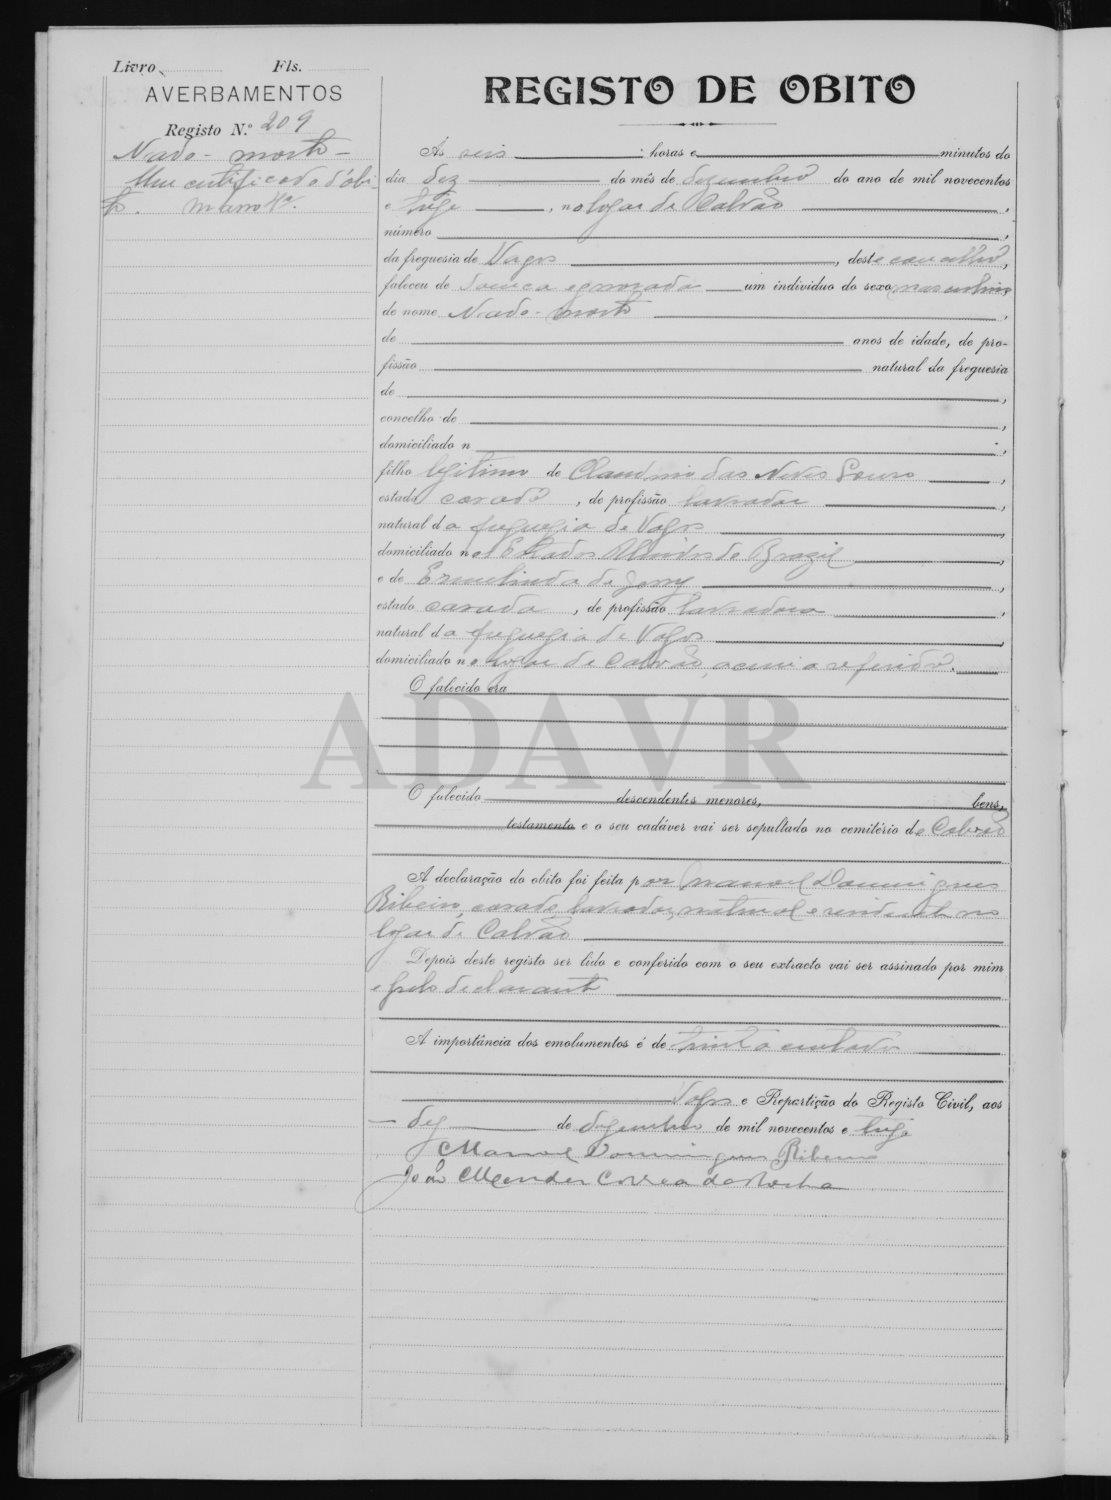 Livro Fls.
AVERBAMENTOS
Registo N.º 209
Nado-morto-
Um certificado d'óbi-
to.
REGISTO DE OBITO
Ás seis horas e minutos do
dia dez do mês de dezembro do ano de mil novecentos
e treze, no logar de Calvão,
número,
da freguesia de Vagos, deste concelho,
faleceu de doença ignorada um individuo do sexo masculino
de nome Nado-morto,
de anos de idade, de pro-
fissão natural da freguesia
de,
concelho de,
domiciliado n,
filho legitimo de Claudino das Neves,
estado casado, de profissão lavrador,
natural da freguezia de Vagos,
domiciliado nos Estados Unidos do Brazil,
e de Ermelinda de Jesus,
estado casada, de profissão lavradora,
natural da freguezia de Vagos,
domiciliado no logar de Calvão, acima referido.
O falecido era
ADAVR
O falecido descendentes menores, bens,
testamento e o seu cadáver vai ser sepultado no cemitério de Calvão
A declaração do obito foi feita por Manoel Domingues
Ribeiro, casado, lavrador, natural e residente no
logar de Calvão
Depois deste registo ser lido e conferido com o seu extracto vai ser assinado por mim
e pelo declarante
A importância dos emolumentos é de trinta centavos
Vagos e Repartição do Registo Civil, aos
dez de dezembro de mil novecentos e treze
Manoel Domingues Ribeiro
João Mendes Correa da Rocha